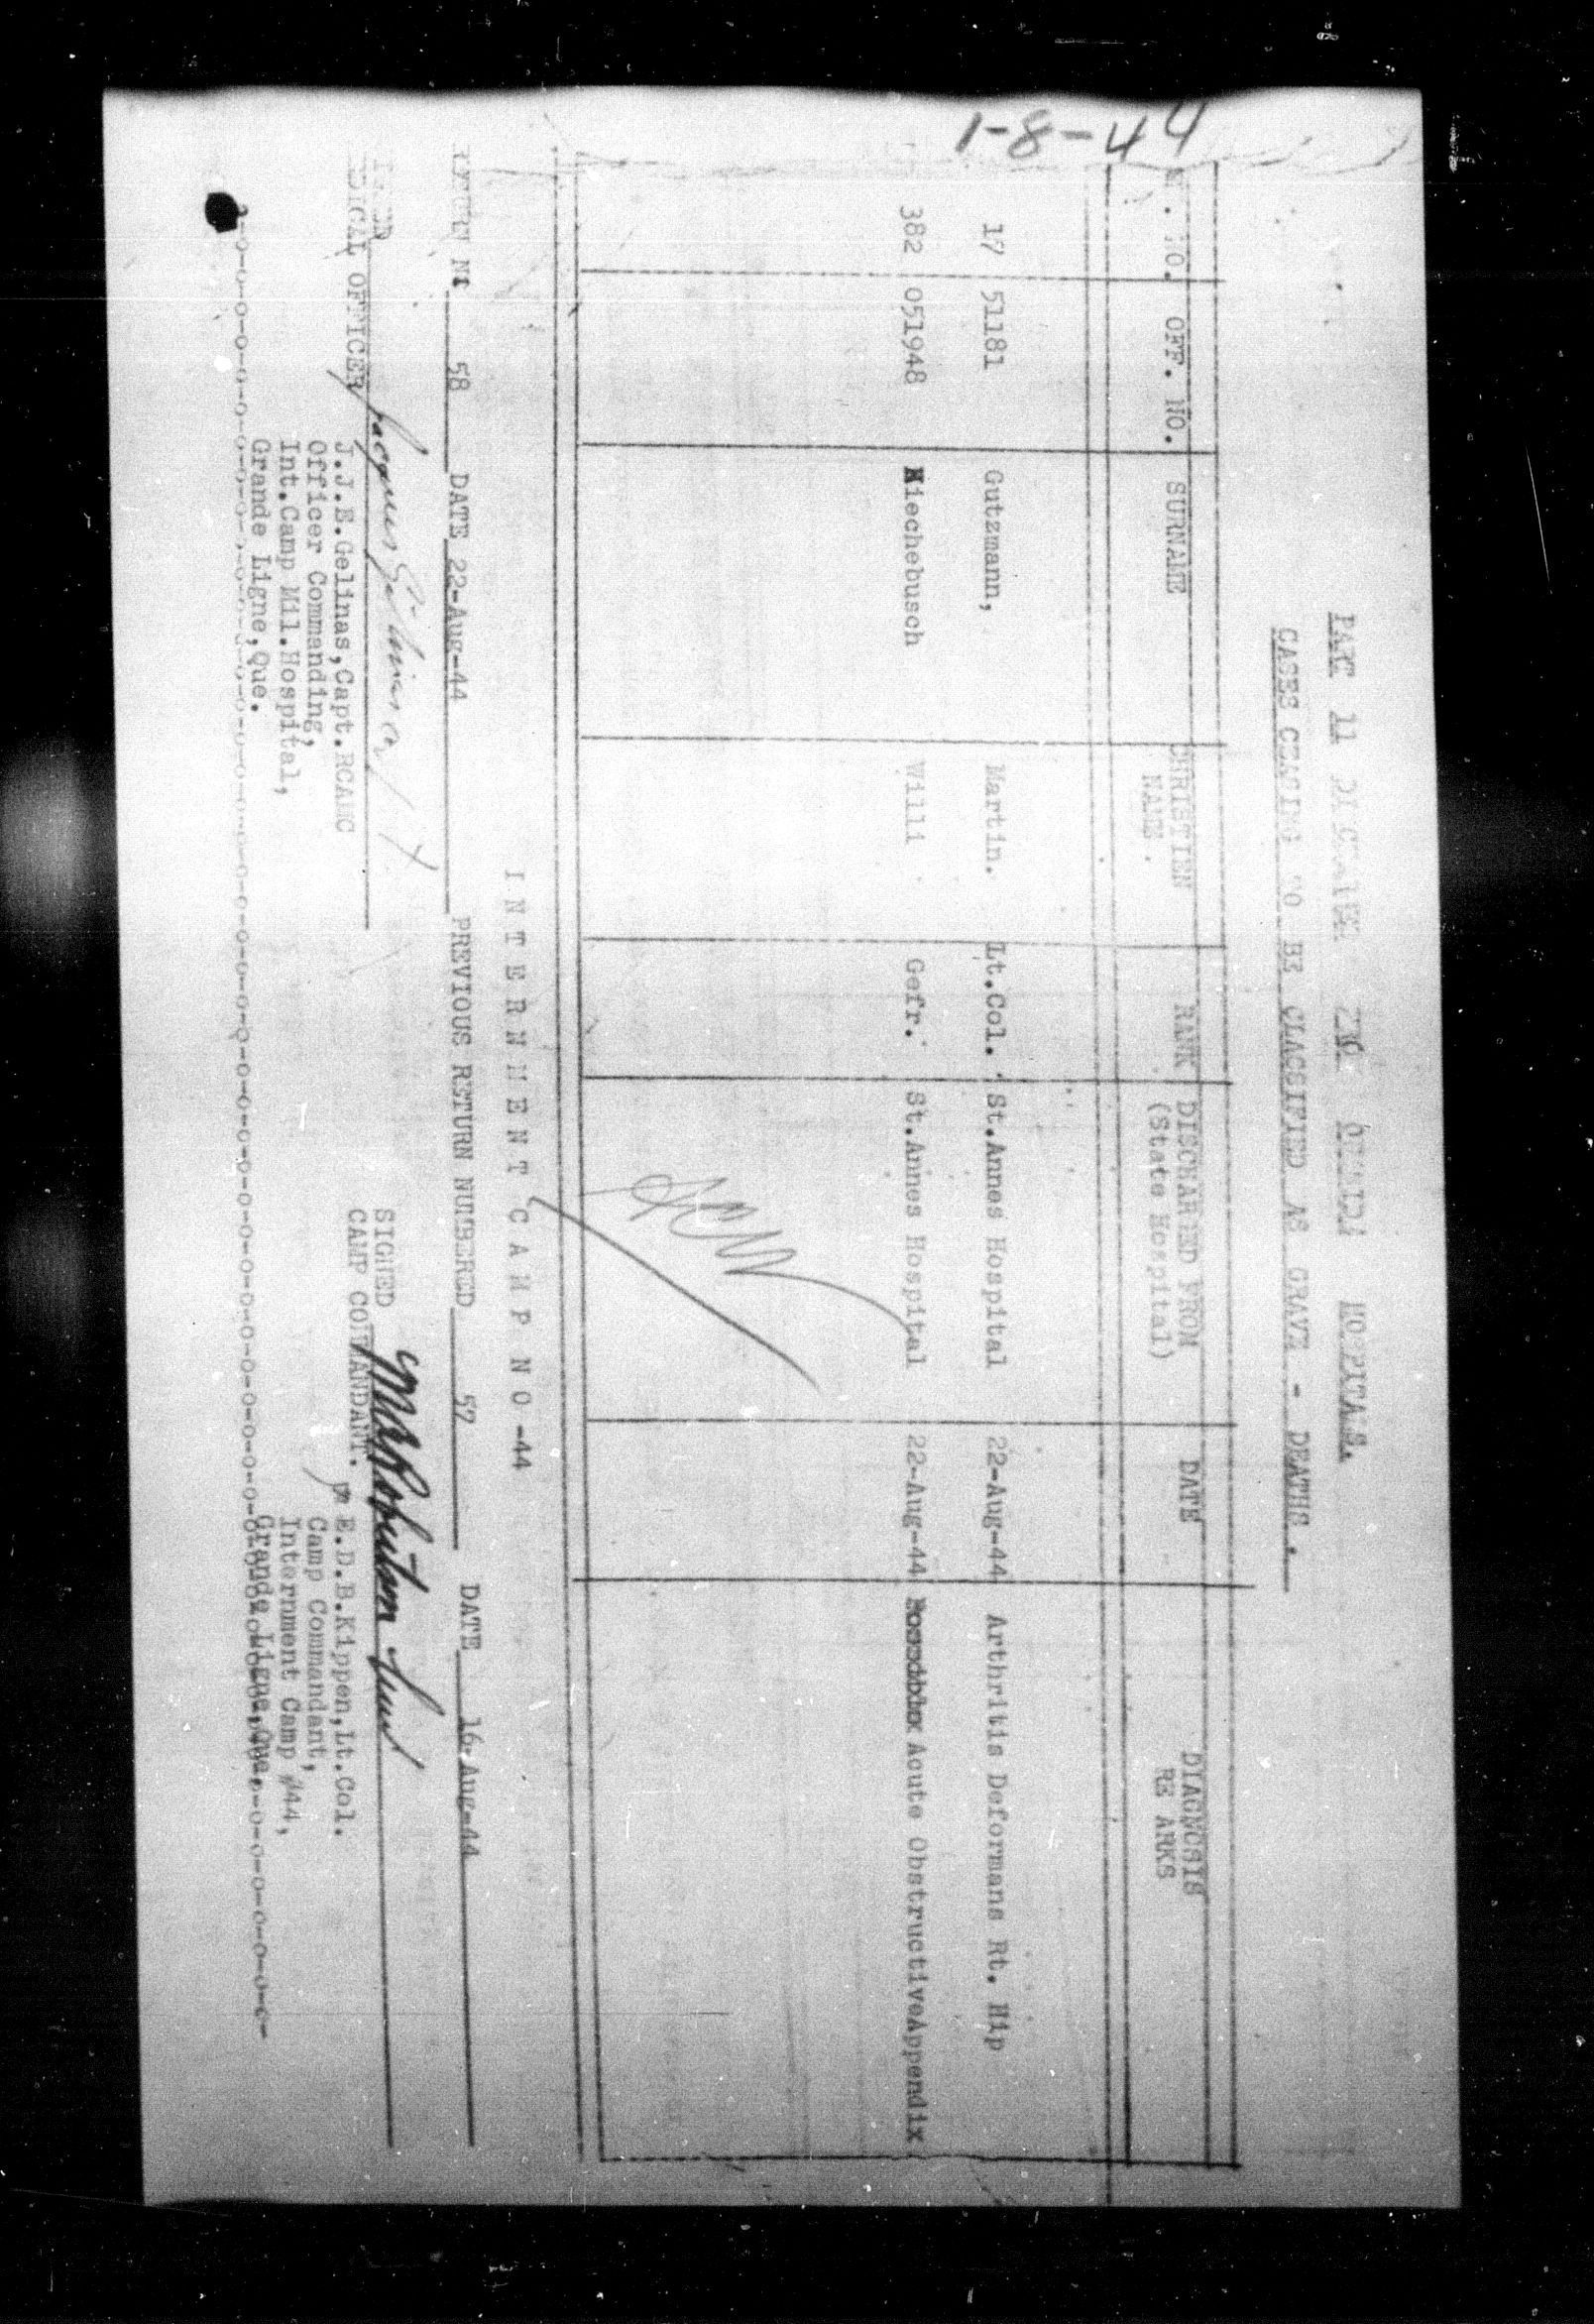 1-8-44
PART 11 HOSPITALS.
CASES CEACING TO BE CLACSIFIED AS GRAVE - DEATHS.
NO. OFF. NO. SURNAME CHRISTIEN NAME. RANK DISCHARGED FROM (State Hospital) DATE DIAGNOSIS RE ARKS
17 51181 Gutzmann, Martin. Lt.Col. St.Annes Hospital 22-Aug-44 Arthritis Deformans Rt. Hip
382 051948 Kiechebusch Willi Gefr. St.Annes Hospital 22-Aug-44 Acute ObstructiveAppendix
INTERNMENT CAMP NO-44
RETURN NO 58 DATE 22-Aug-44 PREVIOUS RETURN NUMBERED 57 DATE 16-Aug-44
SIGNED
DICAL OFFICER
J.J.E.Gelinas,Capt.RCAMC
Officer Commanding,
Int.Camp Mil.Hospital,
Grande Ligne,Que.
SIGNED
CAMP COMMANDANT.
E.D.B.Kippen,Lt.Col.
Camp Commandant,
Internment Camp #44,
Grande Ligne,Que.